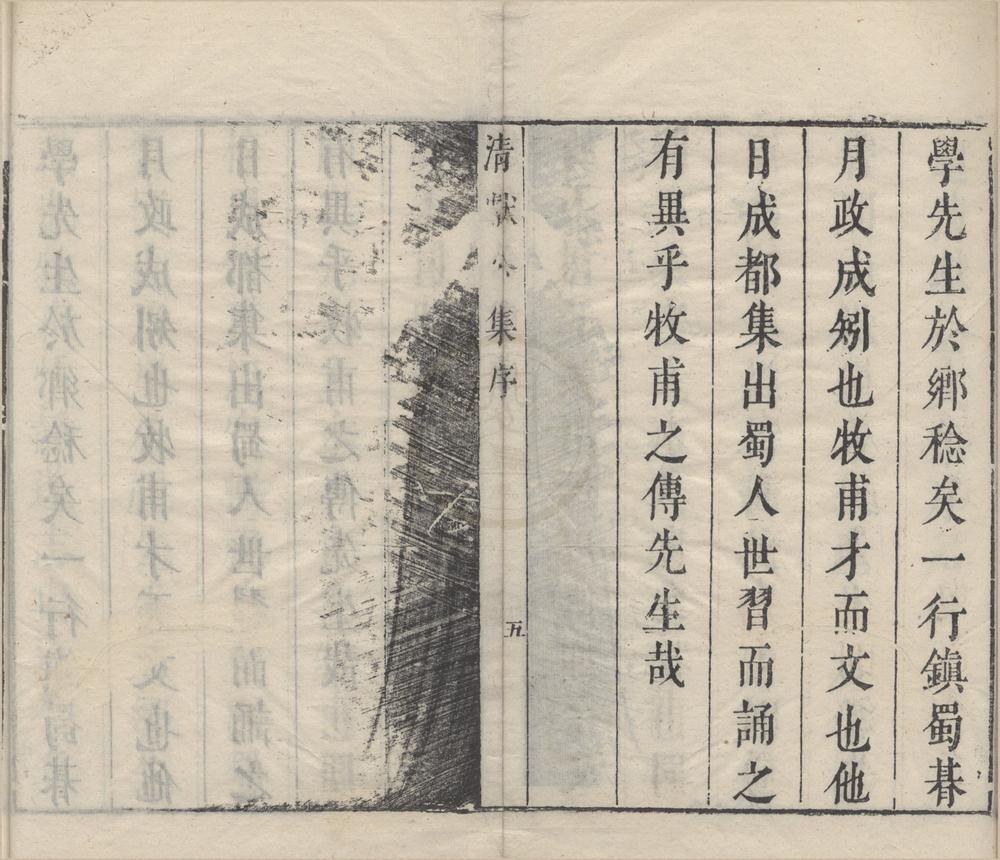 學先生於鄉稔矣一行鎮蜀朞
月政成矧也牧甫才而文也他
日成都集出蜀人世習而誦之
有異乎牧甫之傳先生哉
清獻公集序
五